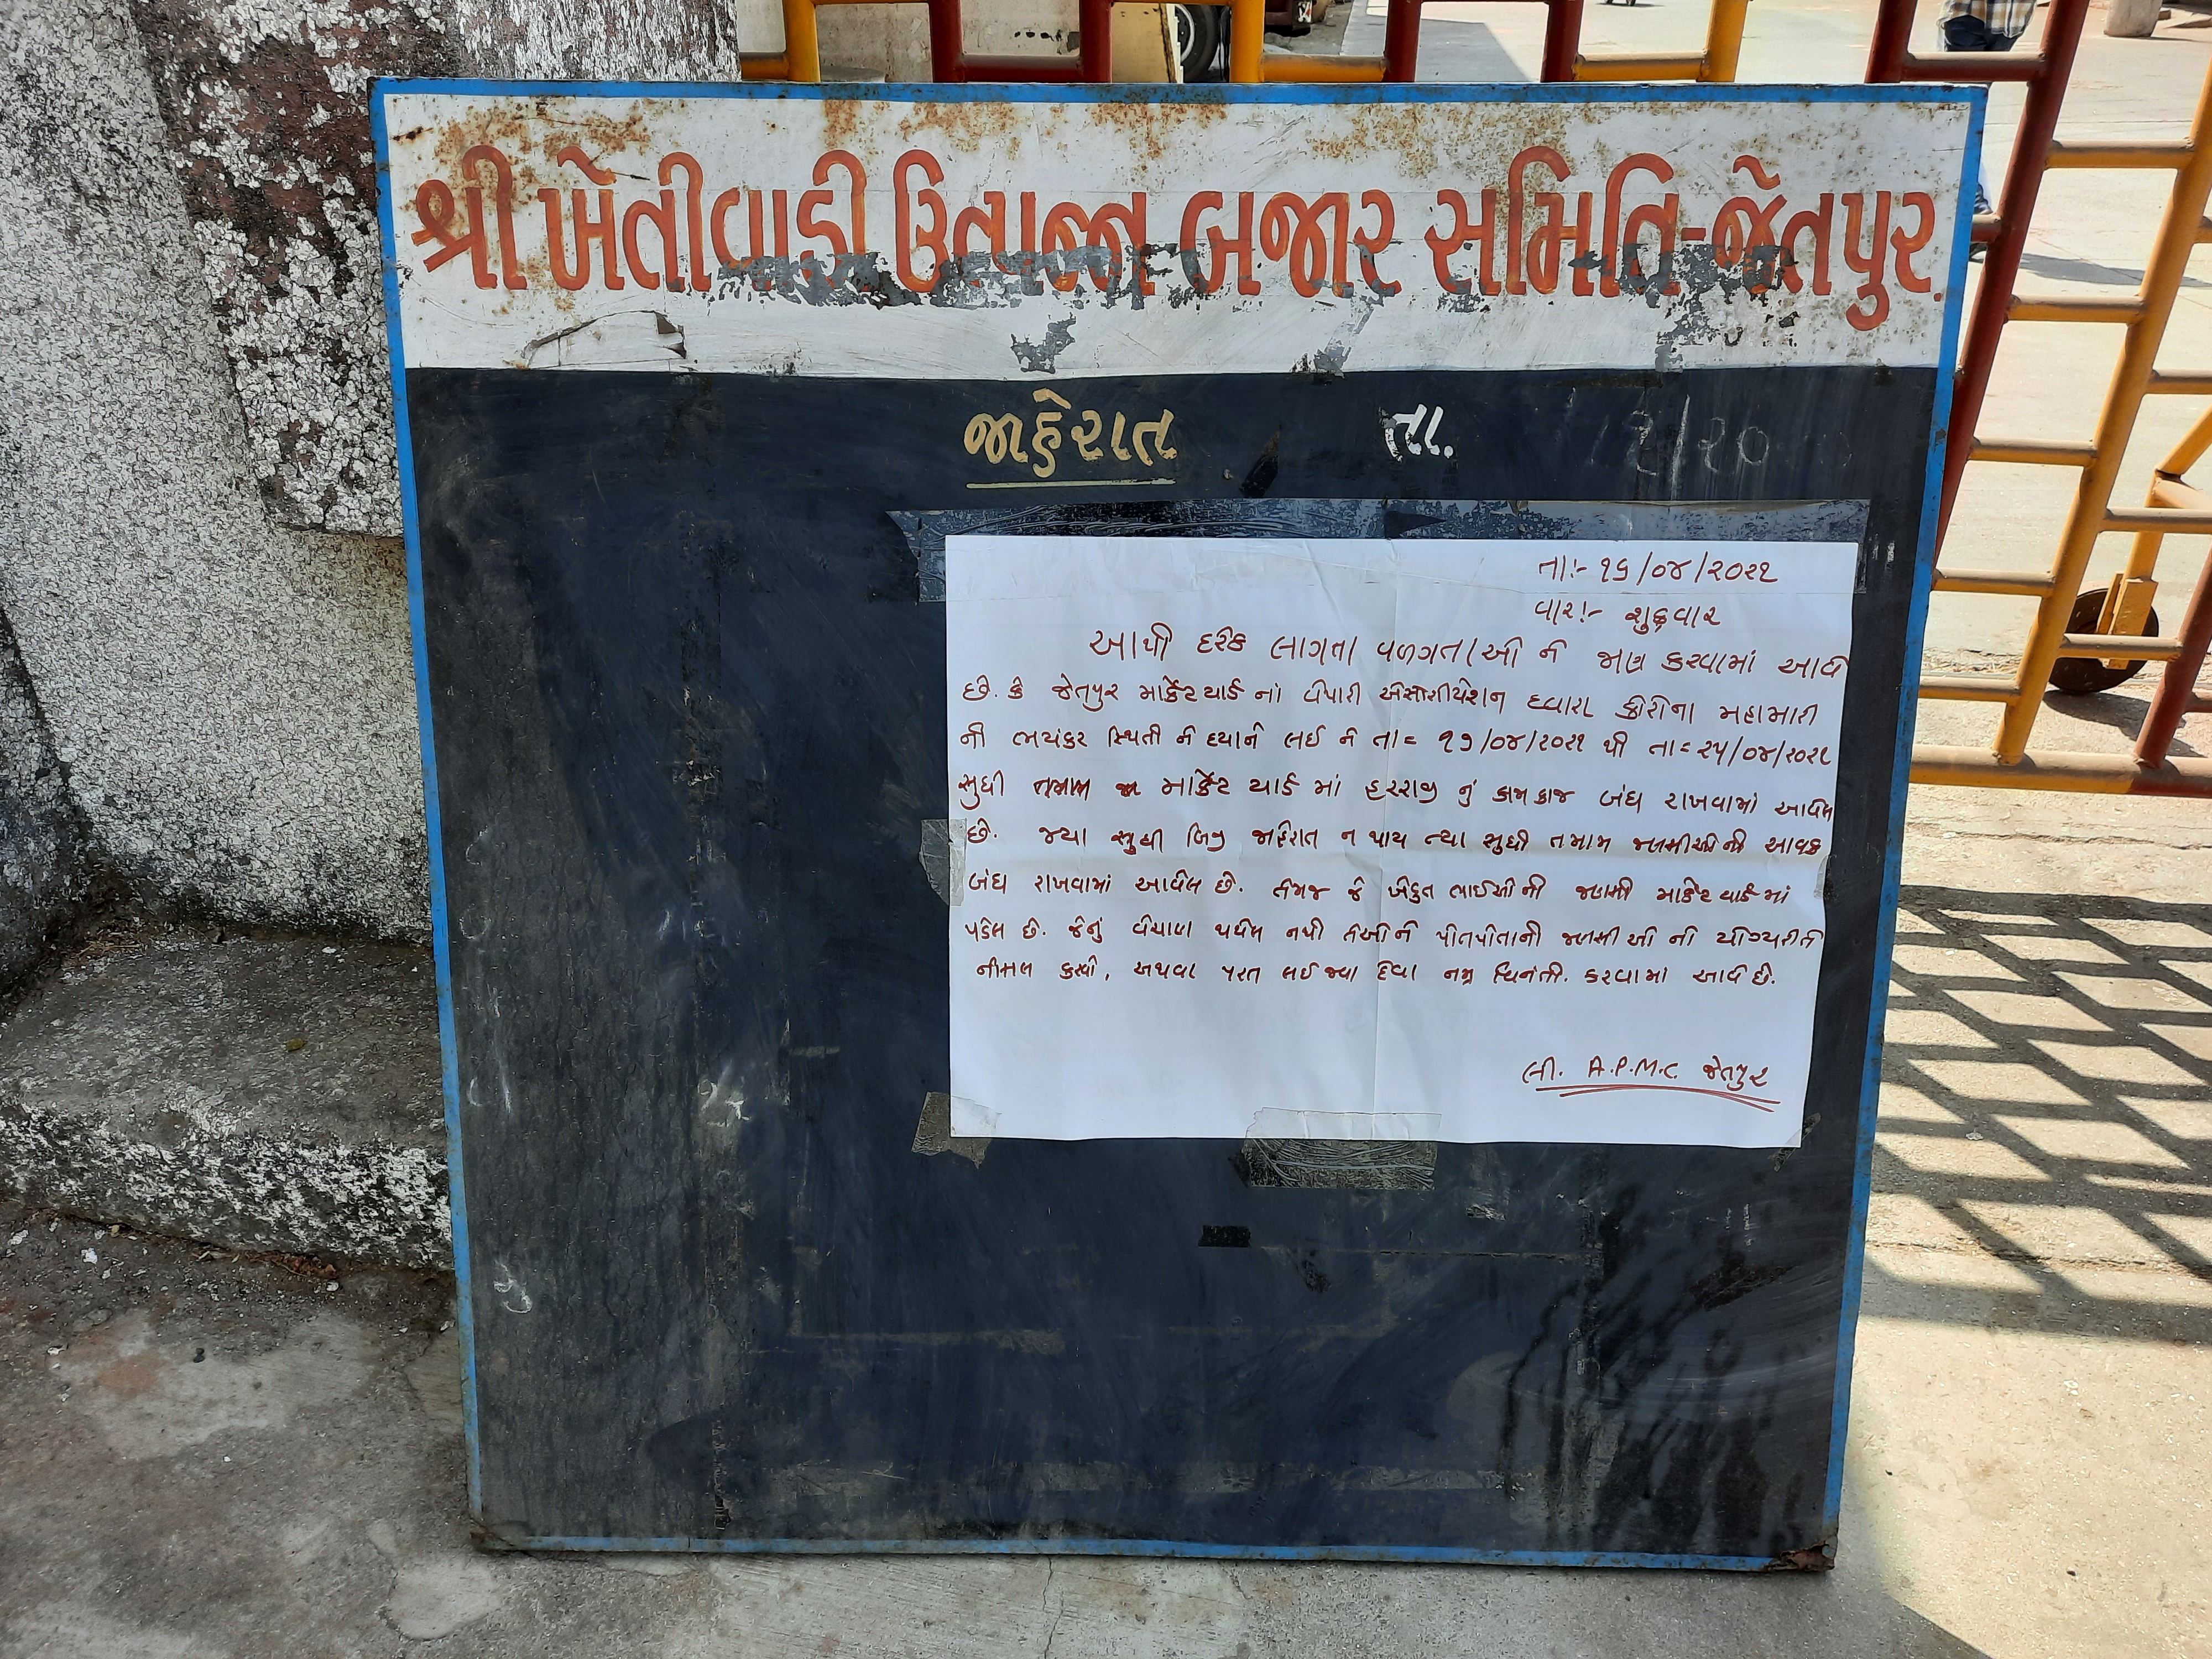 શ્રી ખેતીવાડી ઉત્પન્ન બજાર સમિતિ-જેતપુર.
જાહેરાત તા. ૨/૨૦
તા:- ૧૬/૦૪/૨૦૨૧
વાર:- શુક્રવાર
આથી દરેક લાગતા વળગતાઓ ને જાણ કરવામાં આવે
છે. કે જેતપુર માર્કેટ યાર્ડ નાં વેપારી એસોસીયેશન દ્વારા કોરોના મહામારી
ની ભયંકર સ્થિતી ને ધ્યાને લઈ ને તા= ૧૭/૦૪/૨૦૨૧ થી તા= ૨૫/૦૪/૨૦૨૧
સુધી તમામ માર્કેટ યાર્ડ માં હરરાજી નું કામકાજ બંધ રાખવામાં આવેલ
છે. જ્યા સુધી બિજી જાહેરાત ન થાય ત્યા સુધી તમામ જણસીઓની આવક
બંધ રાખવામાં આવેલ છે. તેમજ જે ખેડુત ભાઈઓ ની જણસી માર્કેટ યાર્ડ માં
પડેલ છે. જેનું વેચાણ થયેલ નથી તેઓને પોતપોતાની જણસીઓ ની યોગ્યરીતે
નીકાલ કરવો, અથવા પરત લઈ જવા દેવા નમ્ર વિનંતી. કરવામાં આવે છે.
લી. A.P.M.C. જેતપુર